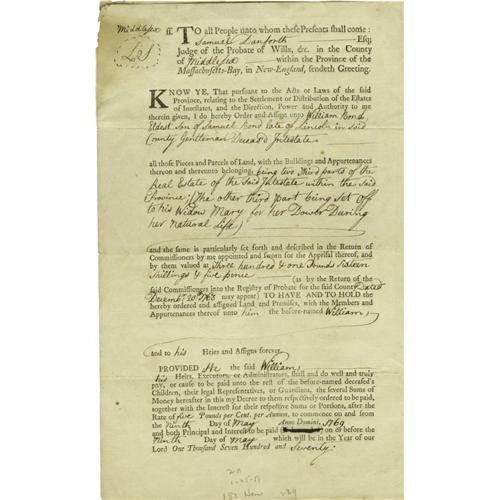 Middlesex ss. TO all People unto whom these Presents shall come:
LS
Samuel Danforth Esq;
Judge of the Probate of Wills, &c. in the County
of Middlesex within the Province of the
Massachusetts-Bay, in New-England, sendeth Greeting.
KNOW YE, That pursuant to the Acts or Laws of the said
Province, relating to the Settlement or Distribution of the Estates
of Intestates, and the Direction, Power and Authority to me
therein given, I do hereby Order and Assign unto William Bond,
Eldest Son of Samuel Bond late of Lincoln in said
County Gentleman Deceas'd Intestate.
all those Pieces and Parcels of Land, with the Buildings and Appurtenances
thereon and thereunto belonging, being two third parts of the
Real Estate of the Said Intestate within the Said
Province, (the other third part being set off
to his Widow Mary for her Dower During
her Natural Life)
(and the same is particularly set forth and described in the Return of
Commissioners by me appointed and sworn for the Apprisal thereof, and
by them valued at Three hundred & one Pounds Sixteen
Shillings & five pence (as by the Return of the
said Commissioners into the Registry of Probate for the said County Dated
Decembr. 20th. 1763 may appear) TO HAVE AND TO HOLD the
hereby ordered and assigned Land and Premises, with the Members and
Appurtenances thereof unto him the before-named William,
and to his Heirs and Assigns forever.
PROVIDED He the said William,
his Heirs, Executors, or Administrators, shall and do well and truly
pay, or cause to be paid unto the rest of the before-named deceased's
Children, their legal Representatives, or Guardians, the several Sums of
Money hereafter in this my Decree to them respectively ordered to be paid,
together with the Interest for their respective Sums or Portions, after the
Rate of five Pounds per Cent. per Annum, to commence on and from
the Ninth Day of May Anno Domini, 1769
and both Principal and Interest to be paid on or before the
Ninth Day of May which will be in the Year of our
Lord One Thousand Seven Hundred and Seventy.
1-25-51